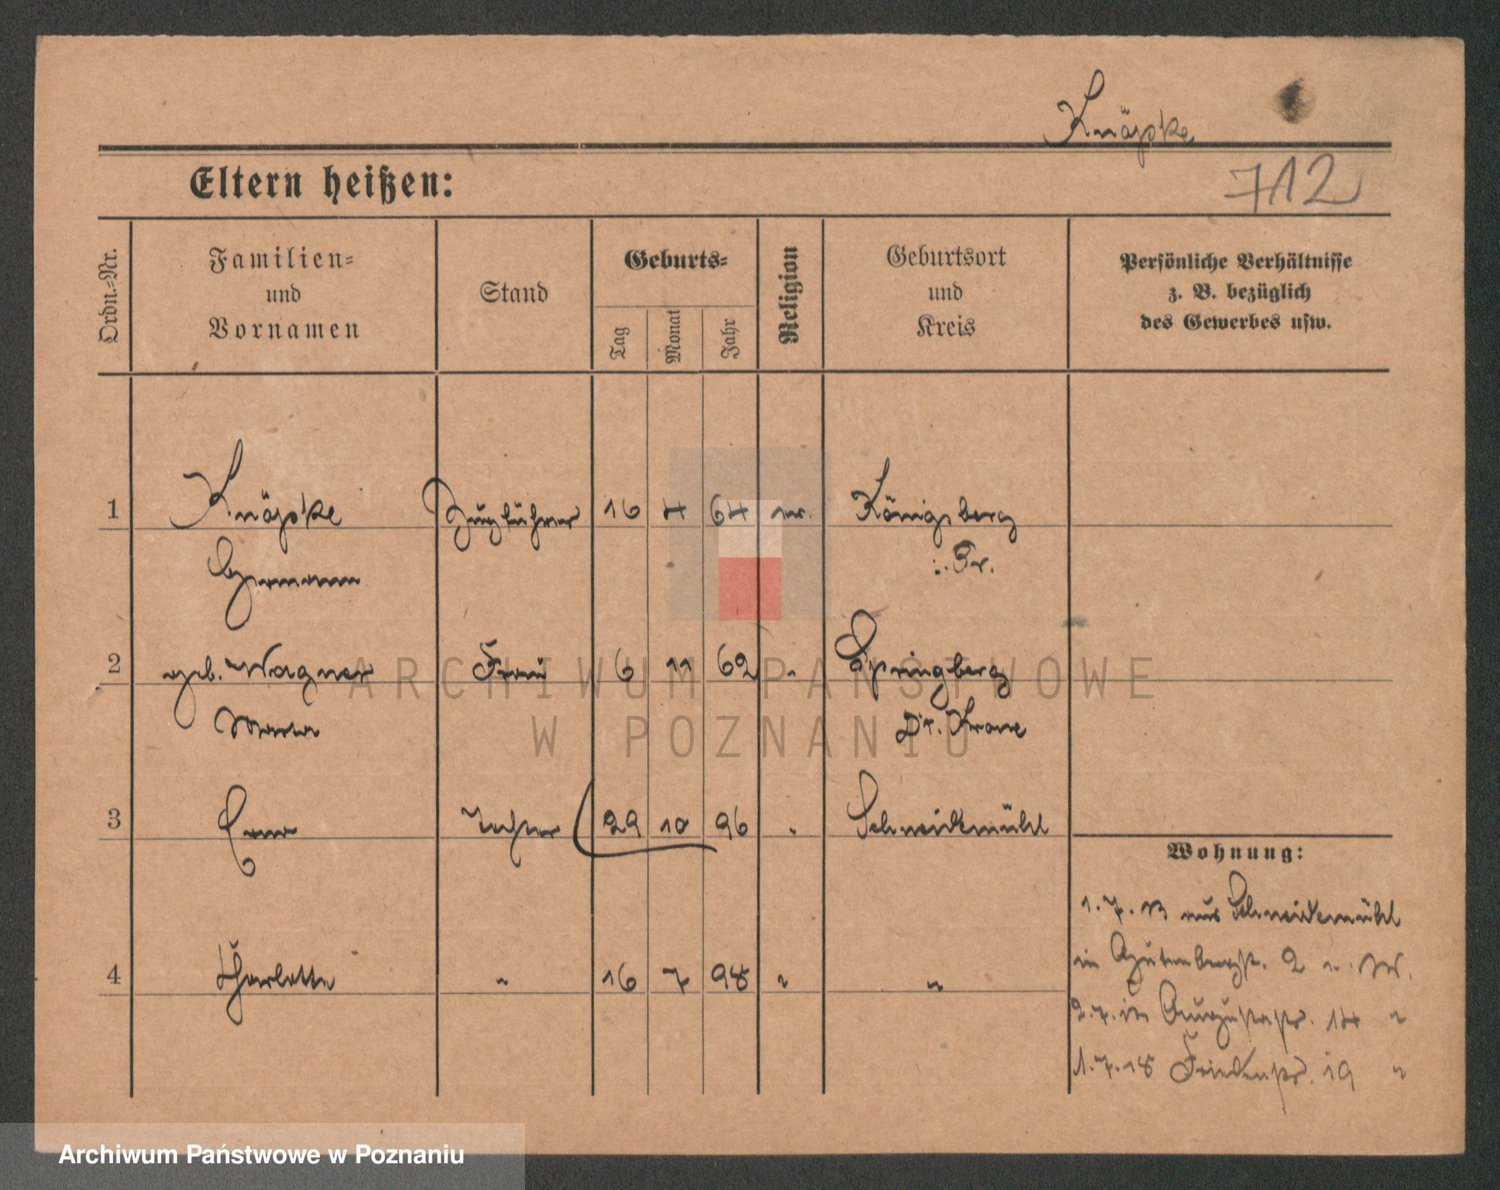 Knäpke
712
Eltern heißen:
Ordn.-Nr.
Familien-
und
Vornamen
Stand
Geburts-
Tag
Monat
Jahr
Religion
Geburtsort
und
Kreis
Persönliche Verhältnisse
z. B. bezüglich
des Gewerbes usw.
1 Knäpke Zugführer 16 4 64 Königsberg
Hermann Pr.
2 geb. Wagner Frau 6 11 62 " Springberg
Maria Dt. Krone
3 Erna Tochter 29 10 96 " Schneidemühl
Wohnung:
1.7.13 aus Schneidemühl
in Gutenbergstr. 2
4 Charlotte " 16 7 98 " "
14 "
1.7.18 Friedenstr. 19 "
ARCHIWUM PAŃSTWOWE
W POZNANIU
Archiwum Państwowe w Poznaniu